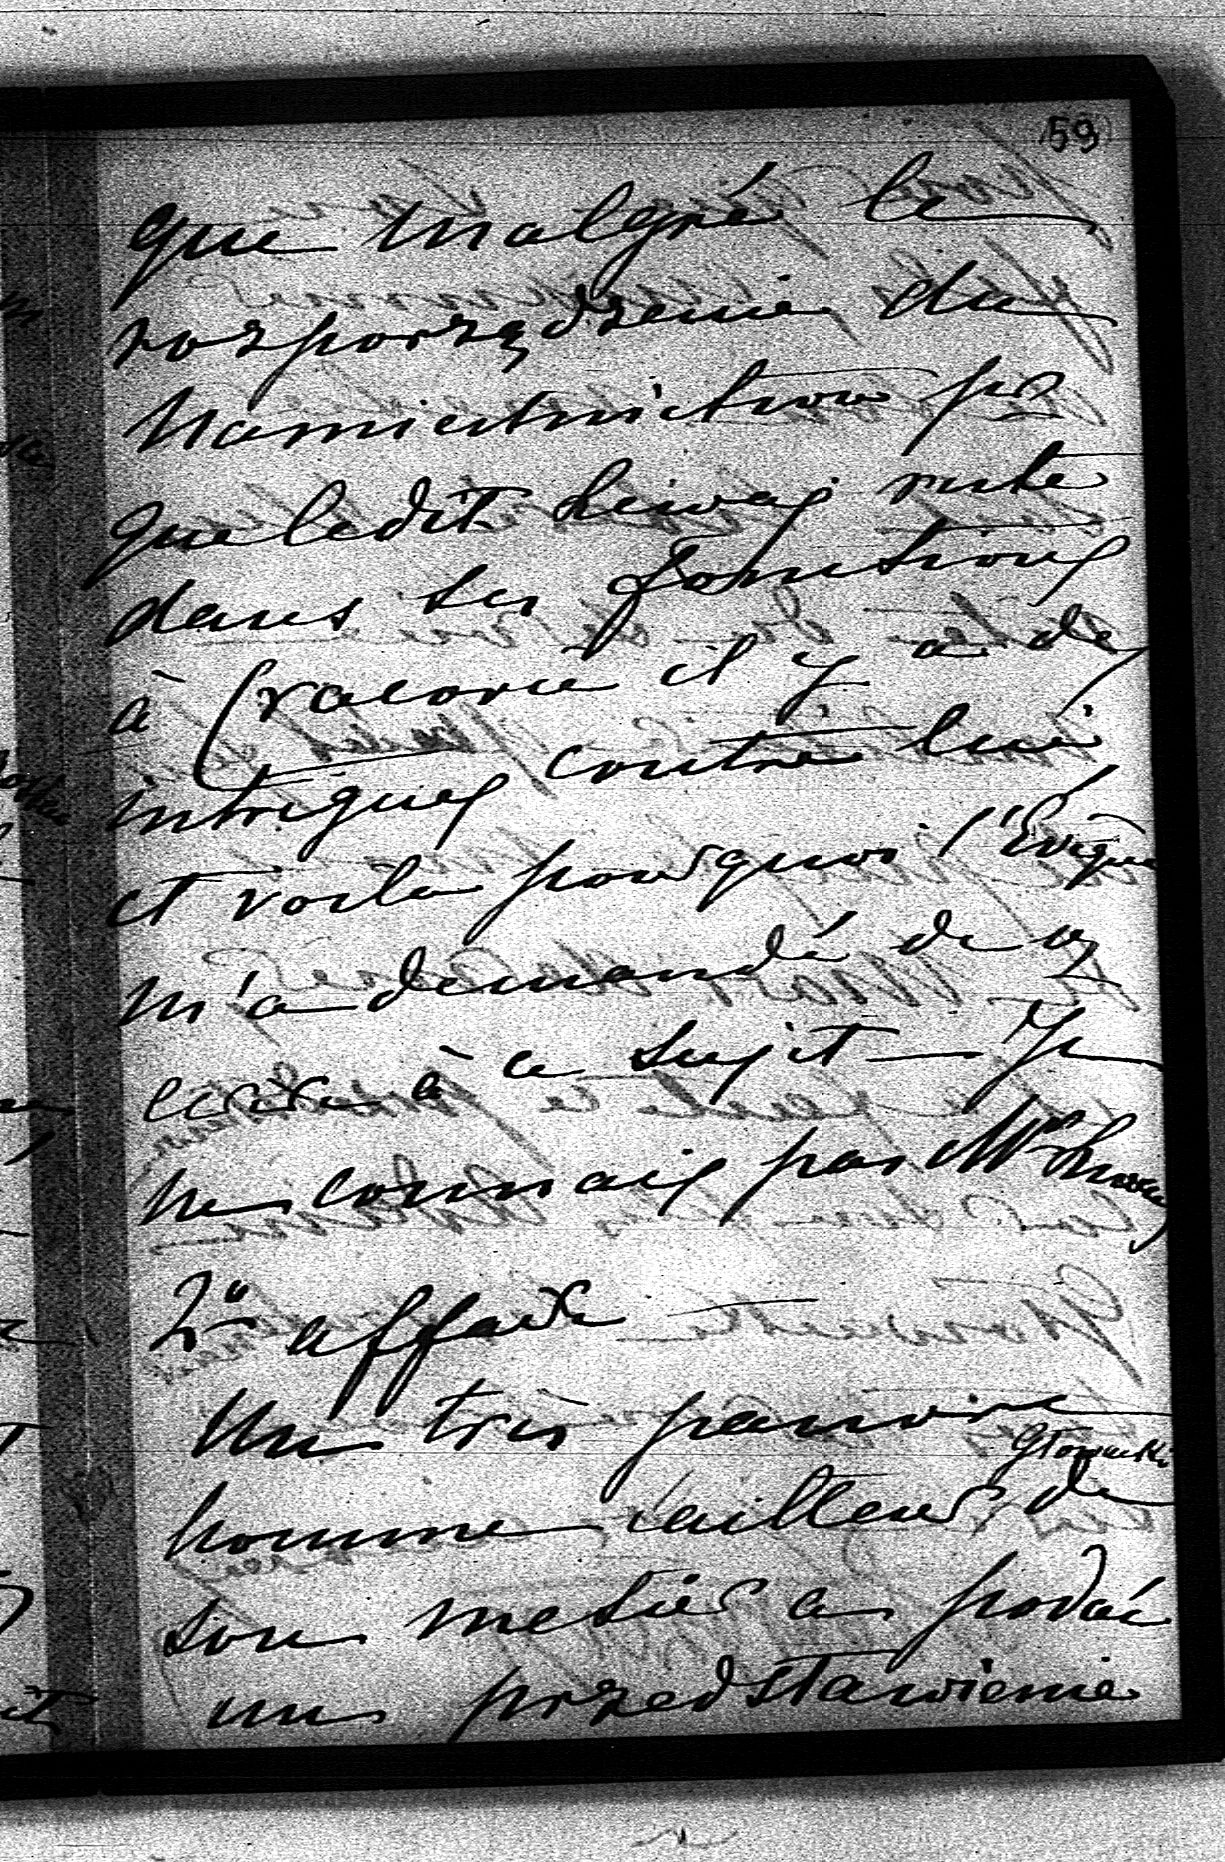 59
que malgré le
rozporządzenie du
Namiestnictwo pr
que ledit Liwaj reste
dans ses fonctions
à Cracovie il y a des
intrigues contre lui
et voila pourquoi l'Evêque
m'a demandé de vs
ecrire à ce sujet — Je
ne connais pas Mr
2o affaire —
Un très pauvre
Głowacki
homme tailleur de
son metier a podać
un przedstawienie